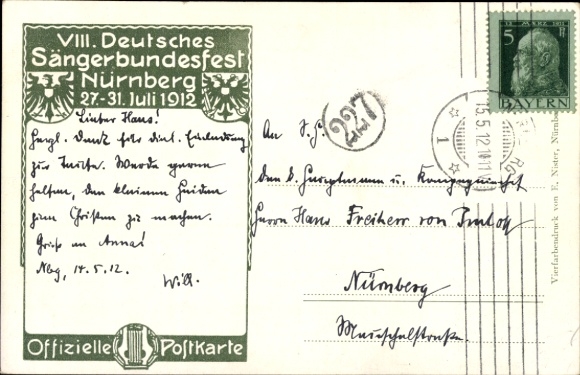 VIII. Deutsches
Sängerbundesfest
Nürnberg
27-31. Juli 1912
Lieber Hans!
Herzl. Dank für die Einladung
zur Taufe. Werde gerne
helfen, den kleinen Heiden
zum Christen zu machen.
Gruß an Anna!
Nbg, 14.5.12.
Will.
Offizielle Postkarte
227
5
BAYERN
15.5.12
1
An S.H.
den k. Hauptmann u.
Herrn Hans Freiherr von Imhoff
Nürnberg
Vierfarbendruck von E. Nister, Nürnberg